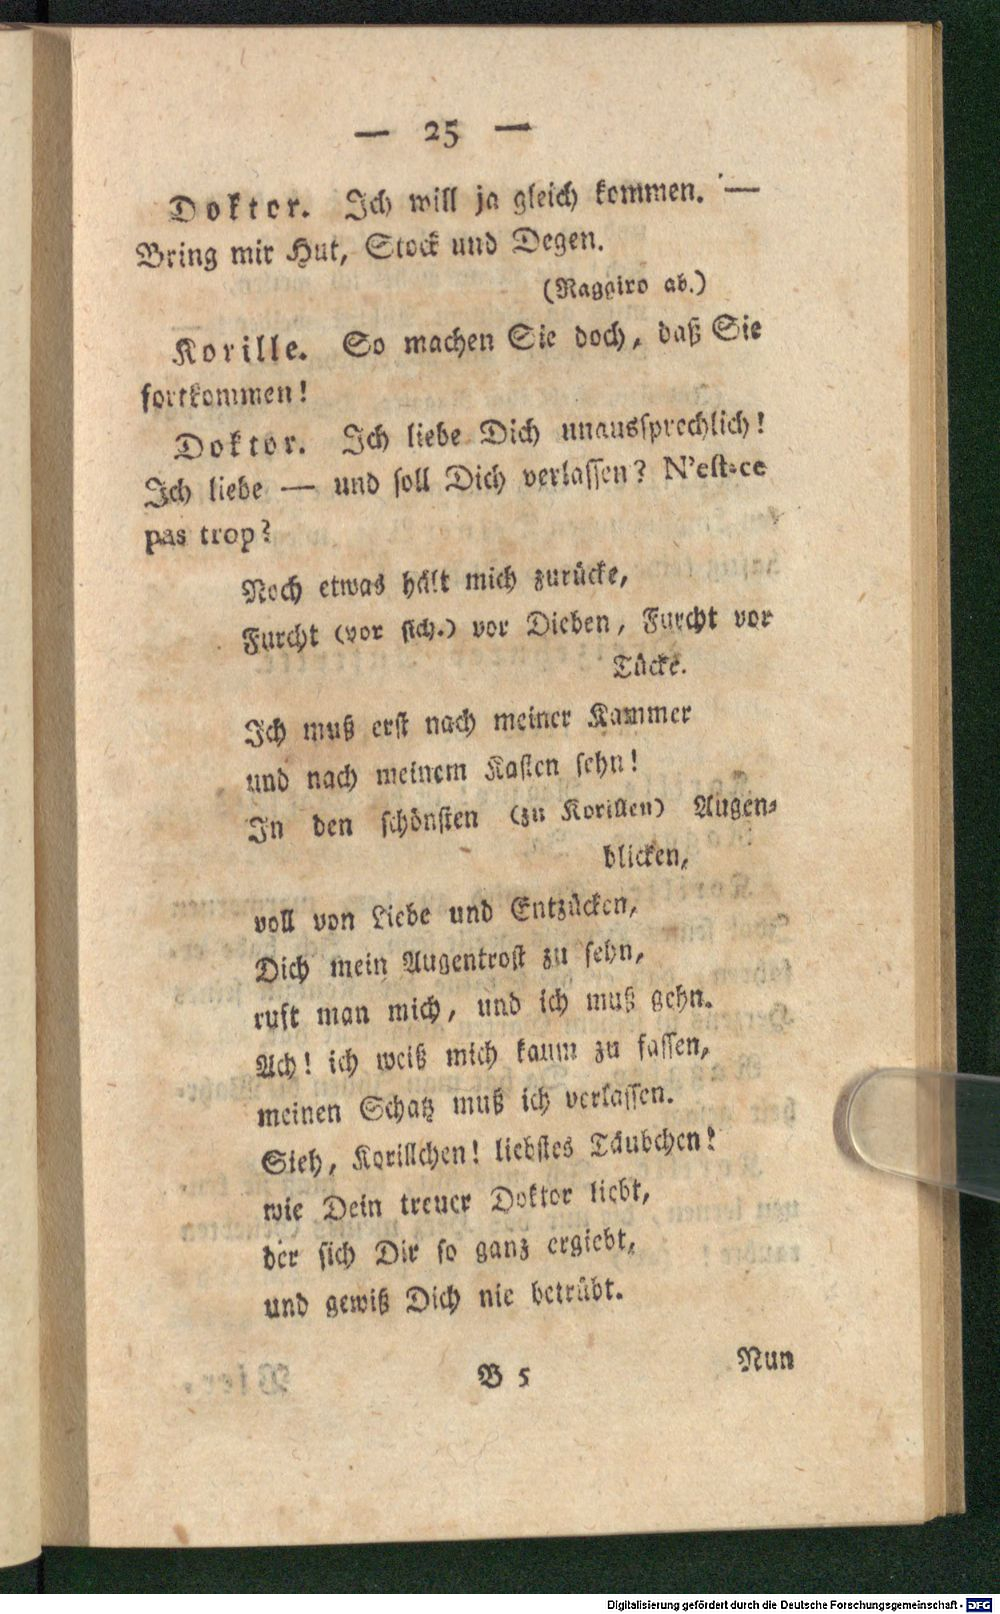 — 25 —
Doktor. Ich will ja gleich kommen. —
Bring mir Hut, Stock und Degen.
(Raggiro ab.)
Korille. So machen Sie doch, daß Sie
fortkommen!
Doktor. Ich liebe Dich unaussprechlich!
Ich liebe — und soll Dich verlassen? N'est-ce
pas trop?
Noch etwas hält mich zurücke,
Furcht (vor sich.) vor Dieben, Furcht vor
Tücke.
Ich muß erst nach meiner Kammer
und nach meinem Kasten sehn!
In den schönsten (zu Korillen) Augen-
blicken,
voll von Liebe und Entzücken,
Dich mein Augentrost zu sehn,
ruft man mich, und ich muß gehn.
Ach! ich weiß mich kaum zu fassen,
meinen Schatz muß ich verlassen.
Sieh, Korillchen! liebstes Täubchen!
wie Dein treuer Doktor liebt,
der sich Dir so ganz ergiebt,
und gewiß Dich nie betrübt.
B 5
Nun
Digitalisierung gefördert durch die Deutsche Forschungsgemeinschaft - DFG